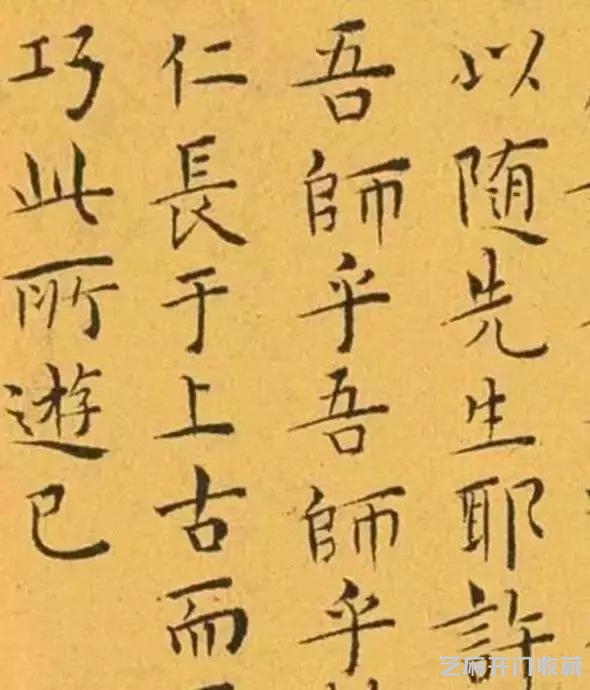 以随先生耶許
吾師乎吾師乎
仁長于上古而
巧此所遊已
芝麻开门收藏